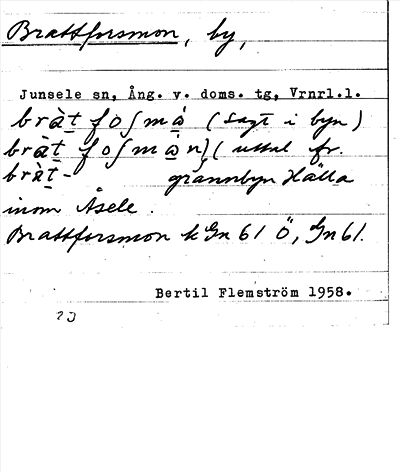 Brattforsmon, by,
Junsele sn, Ång. v. doms. tg, Vrnrl.l.
bràt̲ foʃmå̀ (sagt i byn)
bràt̲ foʃmàn), (uttal fr.
bràt̲- grannbyn Hälla
inom Åsele.
Brattforsmon k Gn 61 Ö, Gn 61.
Bertil Flemström 1958.